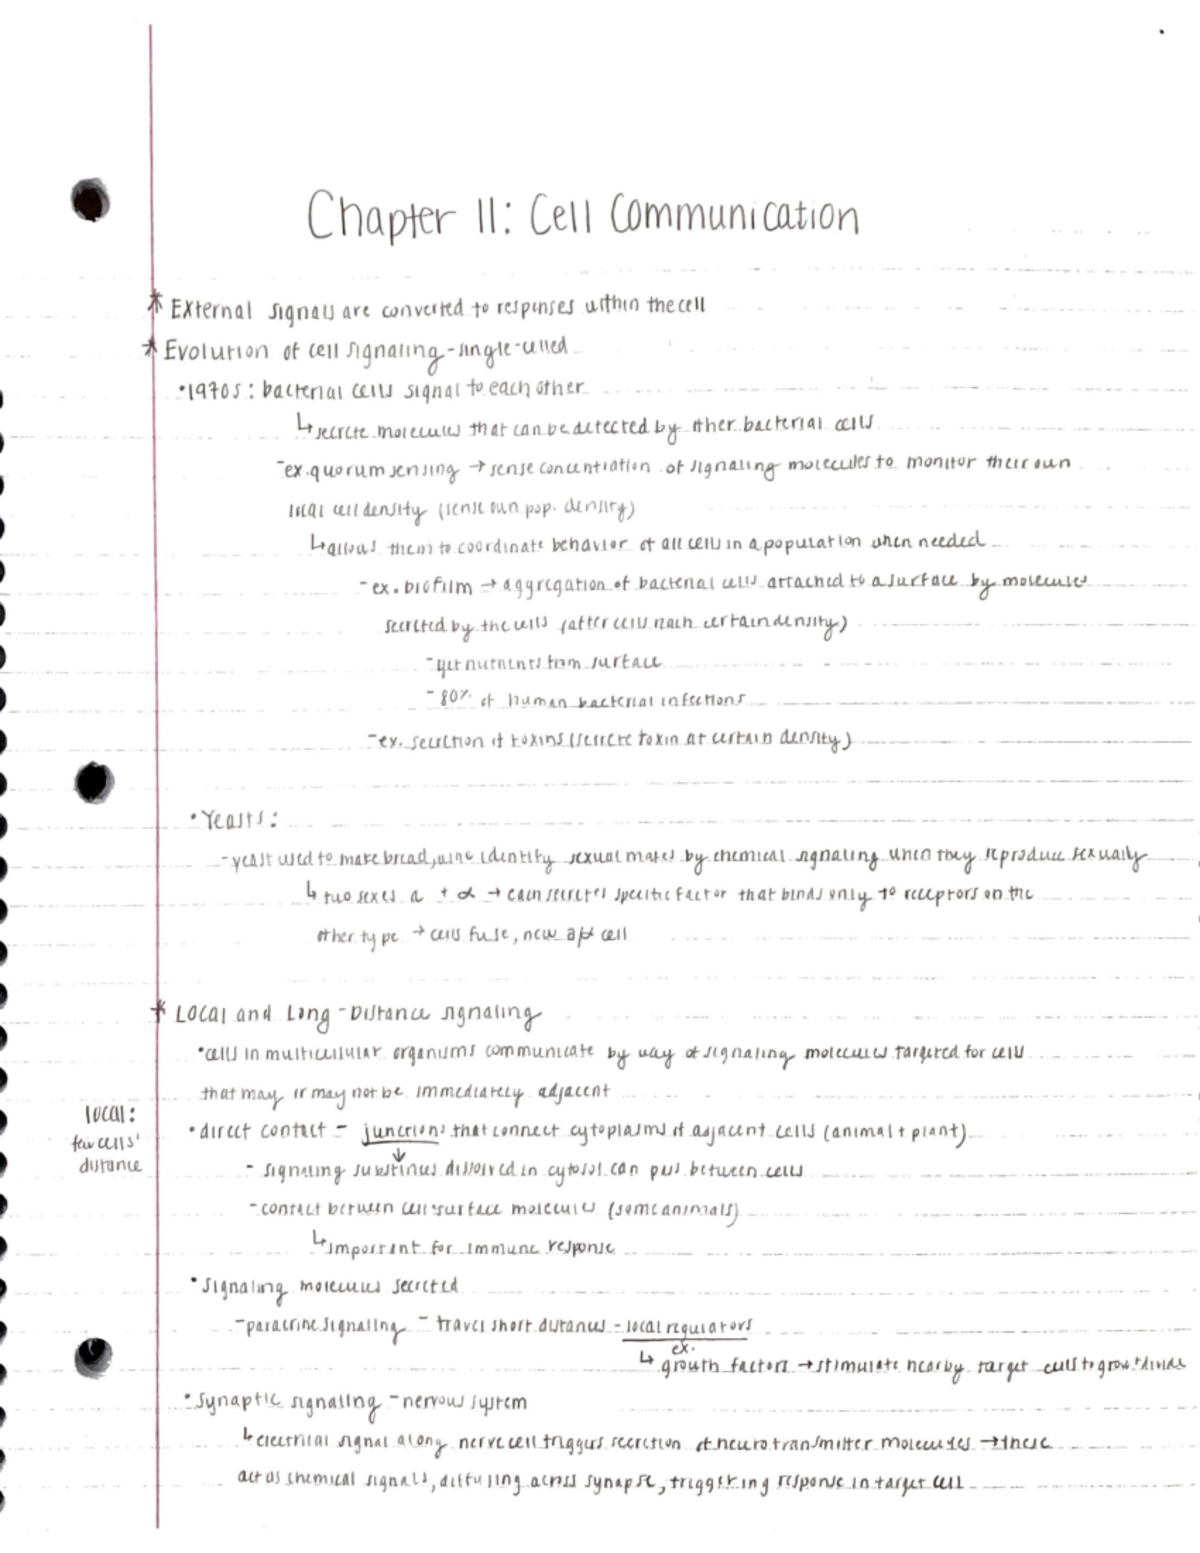 Chapter 11: Cell Communication
* External signals are converted to responses within the cell
* Evolution of cell signaling - single-celled
• 1970s: bacterial cells signal to each other
↳ secrete molecules that can be detected by other bacterial cells
- ex. quorum sensing → sense concentration of signaling molecules to monitor their own
local cell density (sense own pop. density)
↳ allows them to coordinate behavior of all cells in a population when needed
- ex. biofilm → aggregation of bacterial cells attached to a surface by molecules
secreted by the cells (after cells reach certain density)
- get nutrients from surface
- 80% of human bacterial infections
- ex. secretion of toxins (secrete toxin at certain density)
• Yeasts:
- yeast used to make bread, wine identify sexual mates by chemical signaling when they reproduce sexually
↳ two sexes a + α → each secretes specific factor that binds only to receptors on the
other type → cells fuse, new a/α cell
* Local and Long-Distance signaling
• cells in multicellular organisms communicate by way of signaling molecules targeted for cells
that may or may not be immediately adjacent
local:
few cells'
distance
• direct contact - junctions that connect cytoplasms of adjacent cells (animal + plant)
- signaling substances dissolved in cytosol can pass between cells
- contact between cell surface molecules (some animals)
↳ important for immune response
• signaling molecules secreted
- paracrine signaling - travel short distances - local regulators
↳ ex. growth factors → stimulate nearby target cells to grow + divide
• synaptic signaling - nervous system
↳ electrical signal along nerve cell triggers secretion of neurotransmitter molecules → these
act as chemical signals, diffusing across synapse, triggering response in target cell